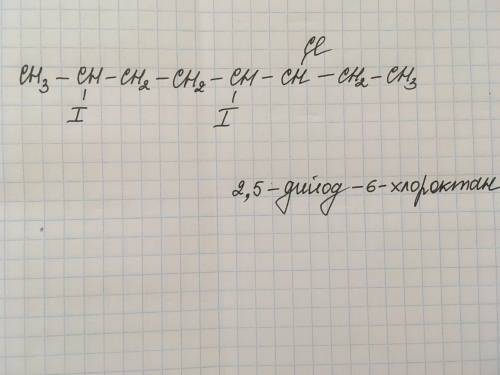 Cl
CH₃ – CH – CH₂ – CH₂ – CH – CH – CH₂ – CH₃
I I
2,5-дийод-6-хлороктан